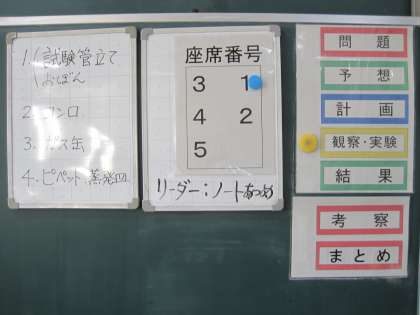 1.(試験管立て
(おぼん
2.コンロ
3.ガス缶
4.ピペット 蒸発皿
座席番号
3 1
4 2
5
リーダー:ノートあつめ
問題
予想
計画
観察・実験
結果
考察
まとめ